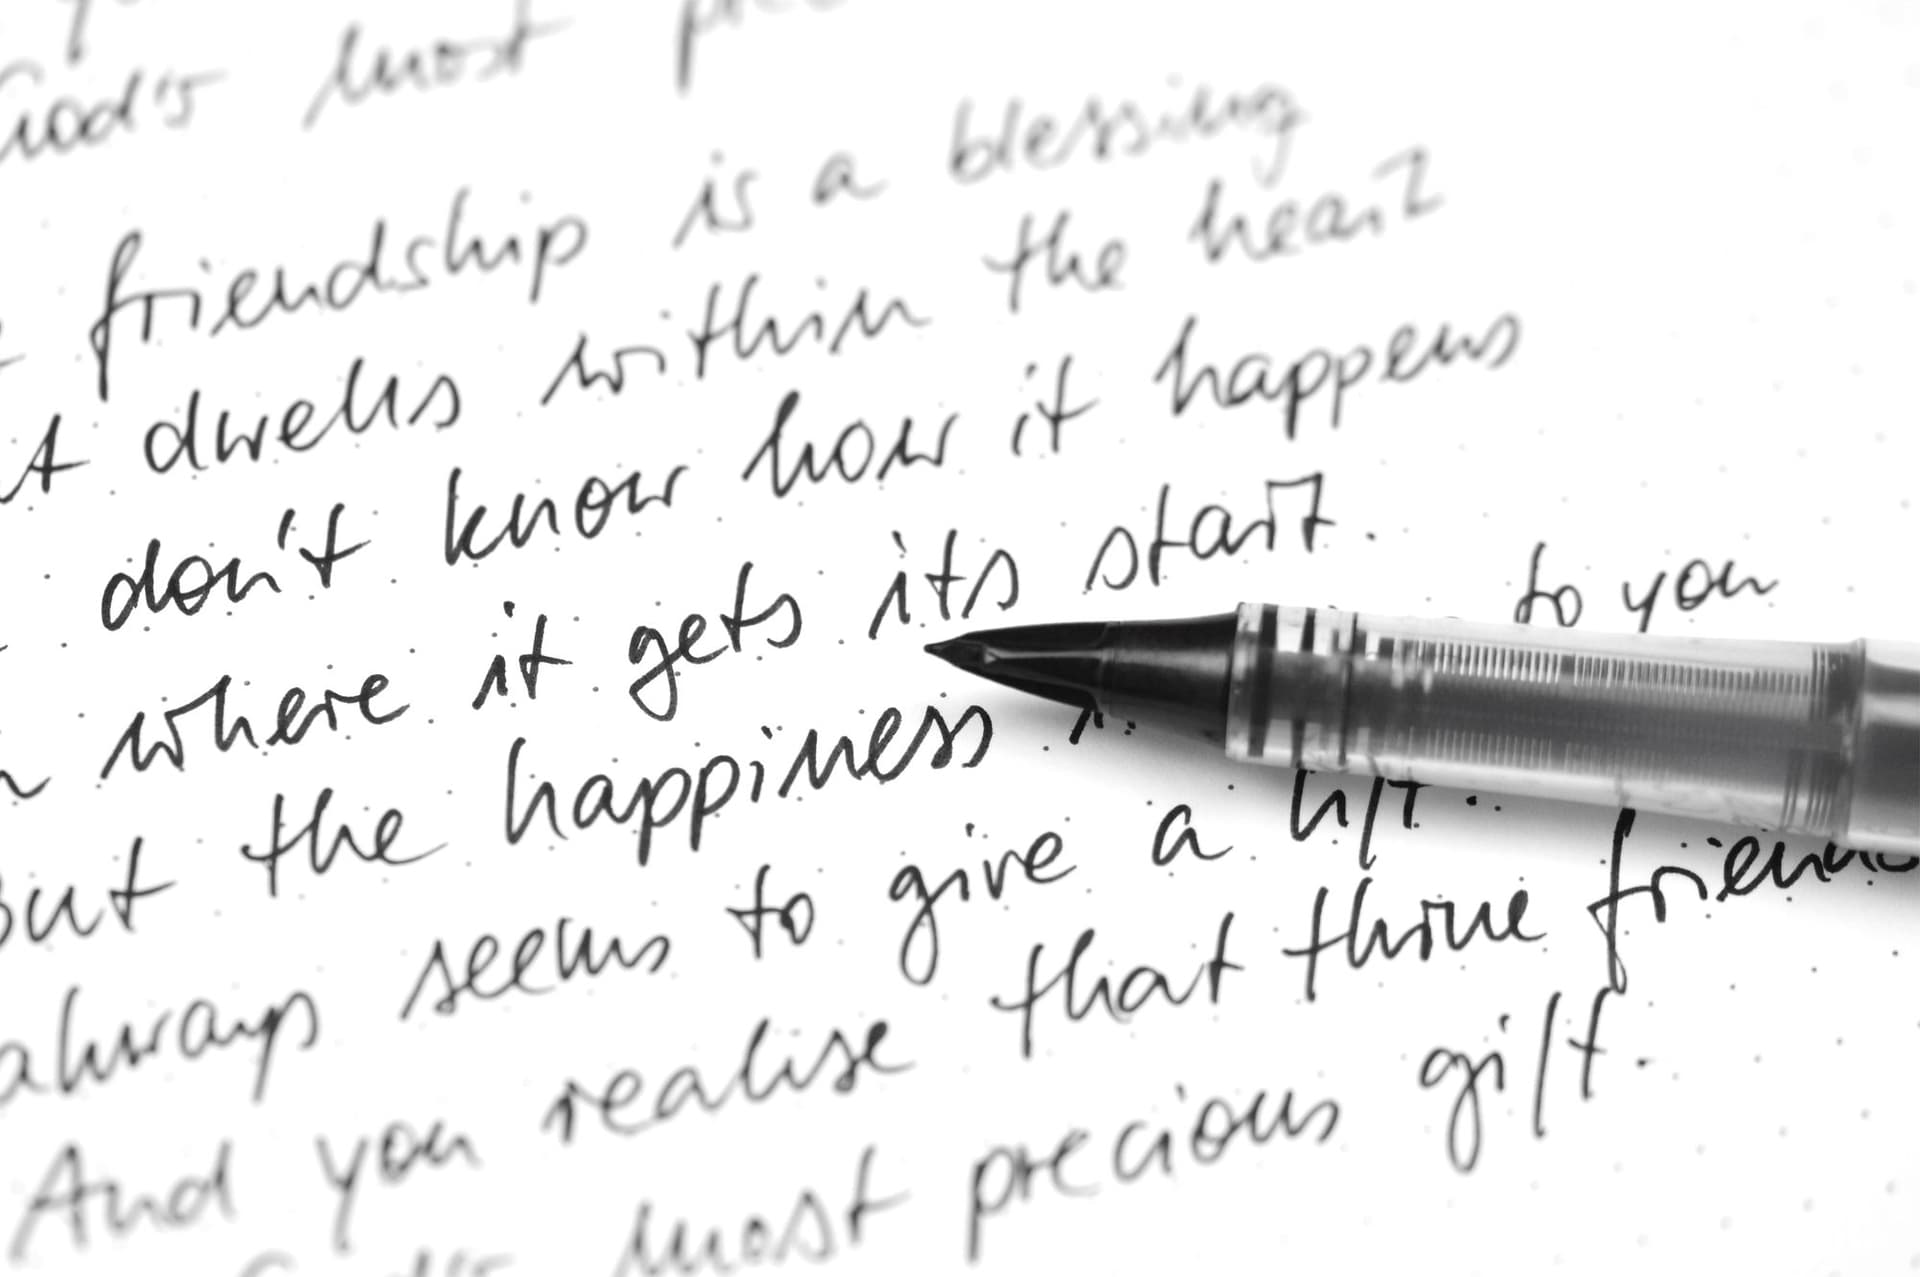 God's most
friendship is a blessing
dwells within the heart
don't know how it happens
where it gets its start.
But the happiness to you
always seems to give a
And you realise that thine
God's most precious gift.